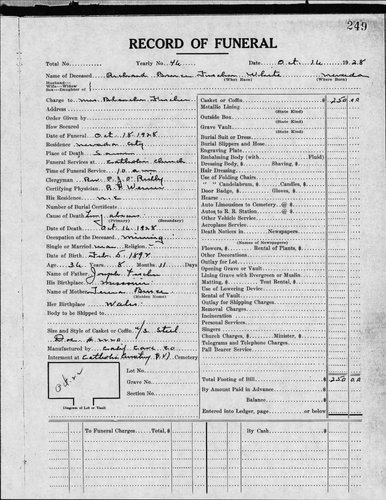 249
RECORD OF FUNERAL
Total No. Yearly No. 46 Date Oct. 16 1928
Name of Deceased Richard White Nevada
(What Race) (Where Born)
Husband Wife Widow
Son Daughter of
Charge to Mrs. Blanche
Address
Order Given by
How Secured
Date of Funeral Oct. 18. 1928
Residence Nevada City
Place of Death
Funeral Services at Catholic Church
Time of Service 10. a.m.
Clergyman Rev.
Certifying Physician
His Residence N.C.
Number of Burial Certificate
Cause of Death Lung abscess
(Primary) (Secondary)
Date of Death Oct. 16. 1928
Occupation of the Deceased Mining
Single or Married Religion
Date of Birth Feb. 5. 1892
Age 36 Years 8 Months 11 Days
Name of Father Joseph
His Birthplace Missouri
Name of Mother
(Maiden Name)
Her Birthplace Wales.
Body to be Shipped to
Size and Style of Casket or Coffin 6/3 Steel
Manufactured by Calif. Co
Interment at Catholic Cemetery
Lot No.
Grave No.
Section No.
Diagram of Lot or Vault
Casket or Coffin $ 250 00
Metallic Lining
(State Kind)
Outside Box
(State Kind)
Grave Vault
(State Kind)
Burial Suit or Dress
Burial Slippers and Hose
Engraving Plate
Embalming Body (with Fluid)
Dressing Body, $ Shaving, $
Hair Dressing
Use of Folding Chairs
" " Candelabrum, $ Candles, $
Door Badge, $ Gloves, $
Hearse
Auto Limousines to Cemetery @ $
Autos to R. R. Station @ $
Other Vehicle Service
Aeroplane Service
Death Notices in Newspapers
(Names of Newspapers)
Flowers, $ Rental of Plants, $
Other Decorations
Outlay for Lot
Opening Grave or Vault
Lining Grave with Evergreen or Muslin
Matting, $ Tent Rental, $
Use of Lowering Device
Rental of Vault
Outlay for Shipping Charges
Removal Charges
Incineration
Personal Services
Singers
Church Charges, $ Minister, $
Telegrams and Telephone Charges
Pall Bearer Service
Total Footing of Bill $ 250 00
By Amount Paid in Advance $
Balance $
Entered into Ledger, page or below $
To Funeral Charges Total $ By Cash $